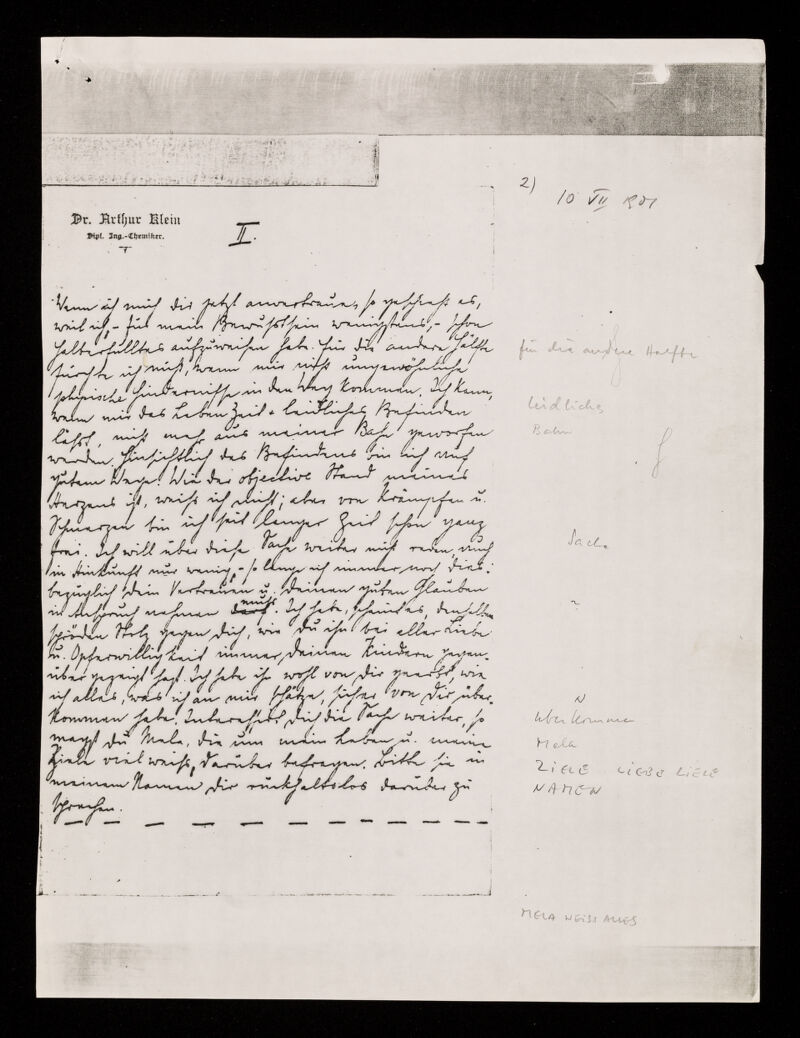 Dr. Arthur Klein
Dipl. Ing.-Chemiker.
II.
2)
10 VII 1901
Wenn ich mich dir jetzt anvertraue, so geschieht es,
weil ich, – für mein Bewußtsein wenigstens, – schon
Halberfülltes aufzuweisen habe. Für die andere Hälfte
fürchte ich nicht, wenn mir nicht ungewöhnliche
physische Hindernisse in den Weg kommen. Ich kann,
wenn mir das Leben Zeit + leidliches Befinden
läßt, nicht mehr aus meiner Bahn geworfen
werden. Hinsichtlich des Befindens bin ich auf
gutem Wege. Wie der objective Stand meines
Herzens ist, weiß ich nicht; aber von Krämpfen u.
Schmerzen bin ich seit langer Zeit schon ganz
frei. Ich will über diese Sache weiter nicht reden, auch
in Hinkunft nur wenig, – so lange ich immer noch dies-
bezüglich dein Vertrauen u. deinen guten Glauben
in Anspruch nehmen muß. Ich habe, scheint es, denselben
spröden Stolz gegen dich, wie du ihn bei aller Liebe
u. Opferwilligkeit immer deinen Kindern gegen-
über gezeigt hast. Ich habe ihn wohl von dir geerbt, wie
ich alles, was ich an mir schätze, sicher von dir über-
kommen habe. Interessirt dich die Sache weiter, so
magst du Mela, die um mein Leben u. meine
Ziele viel weiß, darüber befragen. Bitte sie in
meinem Namen dir rückhaltslos darüber zu
sprechen.
für die andere Haelfte
leidliches
Bahn
Sache
überkommen
Mela
ZIELE LIEBE ZIELE
NAMEN
MELA WEISS ALLES